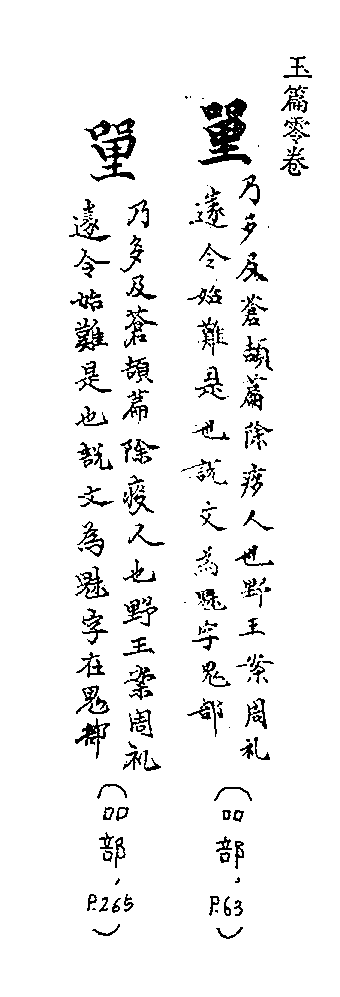 玉篇零卷
乃多反蒼頡篇除疫人也野王案周礼
遂令始難是也說文為魅字鬼部
(吅部，P.63)
乃多及蒼頡篇除疫人也野王案周礼
遂令始難是也說文為魅字在鬼部
(吅部，P.265)